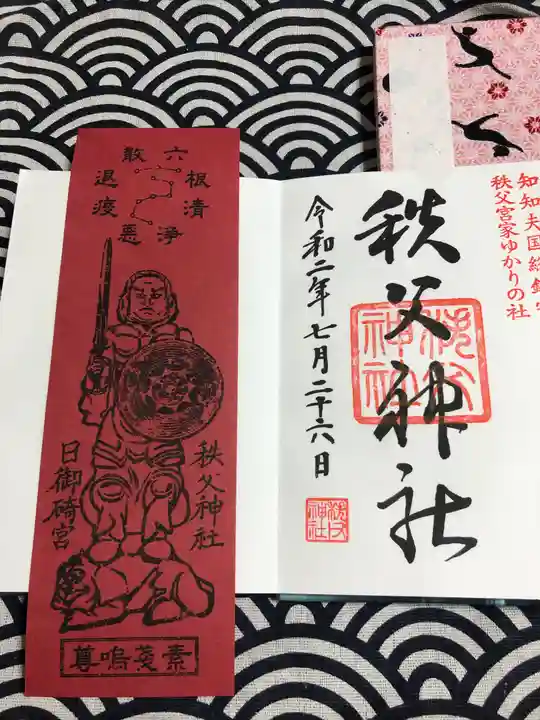 知知夫国総鎮
秩父宮家ゆかりの社
秩父神社
令和二年七月二十六日
秩父神社
秩父神社
六根清浄
悪疫退散
秩父神社
日御碕宮
素盞嗚尊